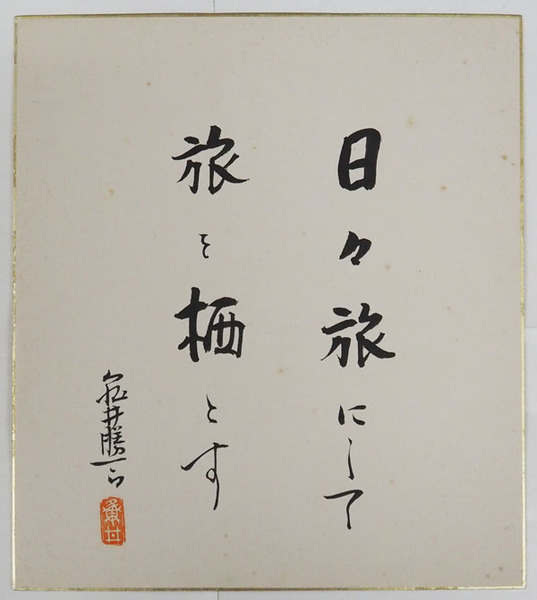 日々旅にして
旅を栖とす
亀井勝一郎